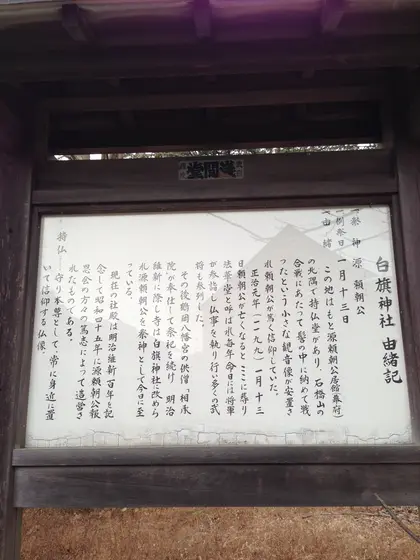 白旗神社 由緒記
(祭神 源 頼朝公
(例祭日 一月十三日
(由緒
この地はもと源頼朝公居館(幕府)
の北隅で持仏堂があり、石橋山の
合戦にあたって髻の中に納めて戦
ったという小さな観音像が安置さ
れ頼朝公が篤く信仰していた。
正治元年(一一九九)一月十三
日頼朝公が亡くなるとここに葬り
法華堂と呼ばれ毎年命日には将軍
が参詣し仏事を執り行い多くの武
将も参列した。
その後鶴岡八幡宮の供僧、相承
院が奉仕して祭祀を続け、明治
維新に際し寺は白旗神社に改めら
れ源頼朝公を祭神として今日に至
っている。
現在の社殿は明治維新百年を記
念して昭和四十五年に源頼朝公報
恩会の方々の篤志によって造営さ
れたものである。
持仏 守り本尊として、常に身近に置
いて信仰する仏像